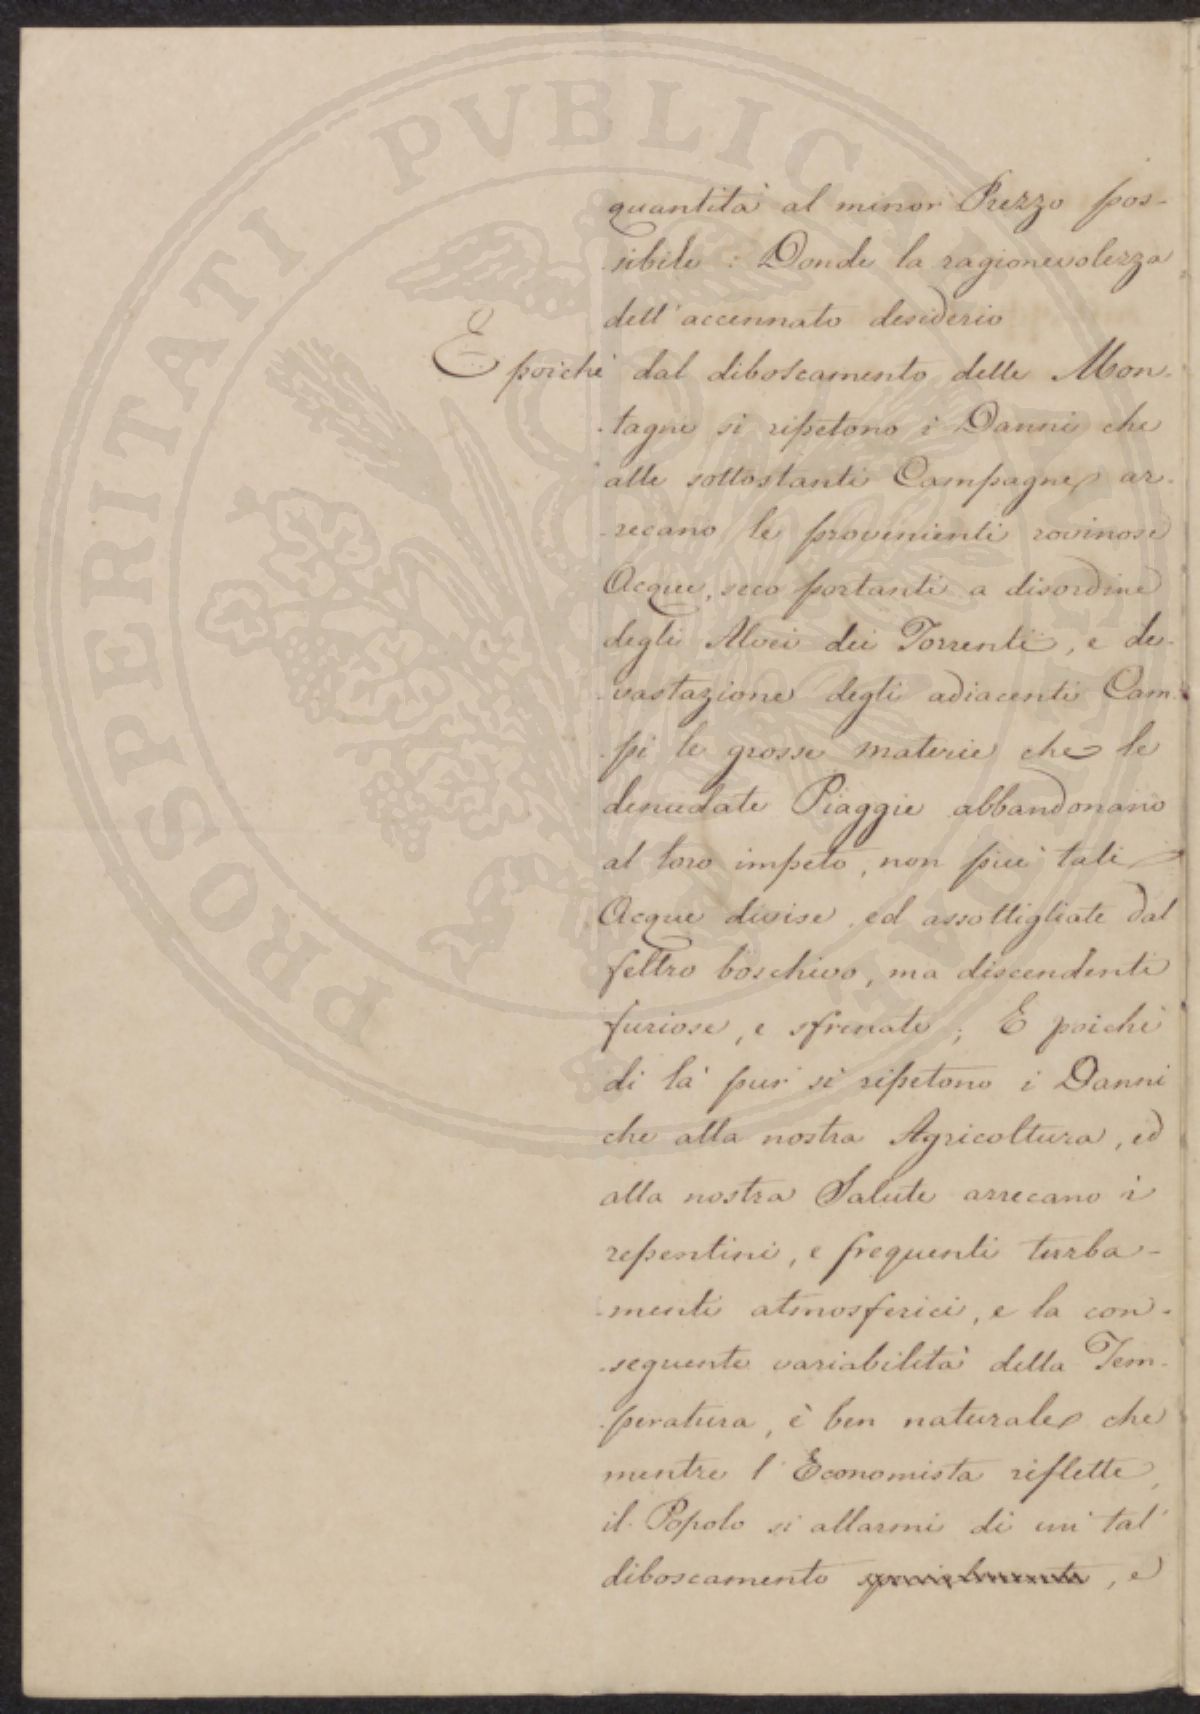 PROSPERITATI PVBLICAE
quantità al minor Prezzo pos-
sibile : Donde la ragionevolezza
dell'accennato desiderio
E poichè dal diboscamento delle Mon-
-tagne si ripetono i Danni che
alle sottostanti Campagne ar-
-recano le provenienti rovinose
Acque, seco portanti a disordine
degli Alvei dei Torrenti, e de-
-vastazione degli adiacenti Cam-
-pi le grosse materie che le
denudate Piaggie abbandonano
al loro impeto, non più tali
Acque divise ed assottigliate dal
feltro boschivo, ma discendenti
furiose, e sfrenate; E poichè
di là pur si ripetono i Danni
che alla nostra Agricoltura, ed
alla nostra Salute arrecano i
repentini, e frequenti turba-
-menti atmosferici, e la con-
-seguente variabilità della Tem-
-peratura, è ben naturale che
mentre l'Economista riflette,
il Popolo si allarmi di un tal
diboscamento , e